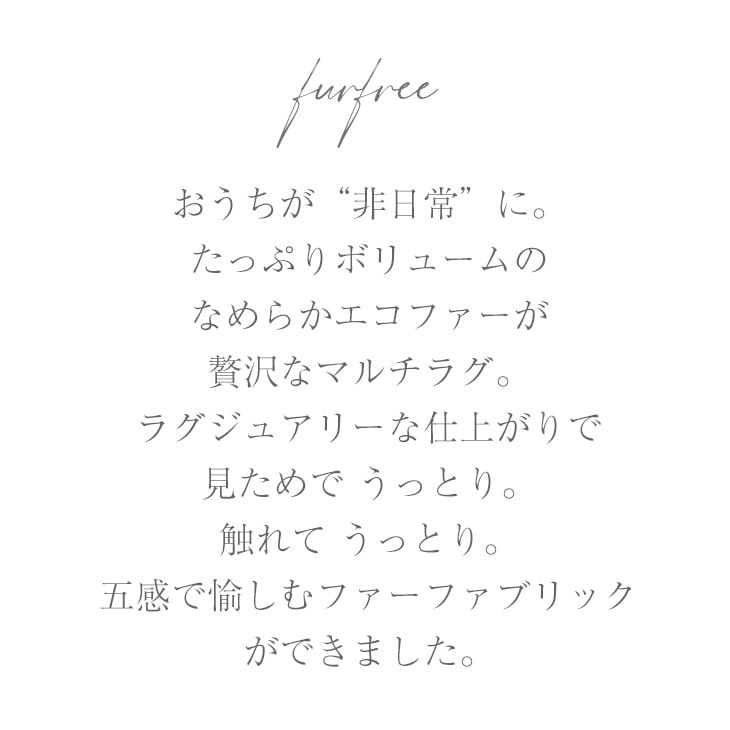 furfree
おうちが“非日常”に。
たっぷりボリュームの
なめらかエコファーが
贅沢なマルチラグ。
ラグジュアリーな仕上がりで
見ためで うっとり。
触れて うっとり。
五感で愉しむファーファブリック
ができました。